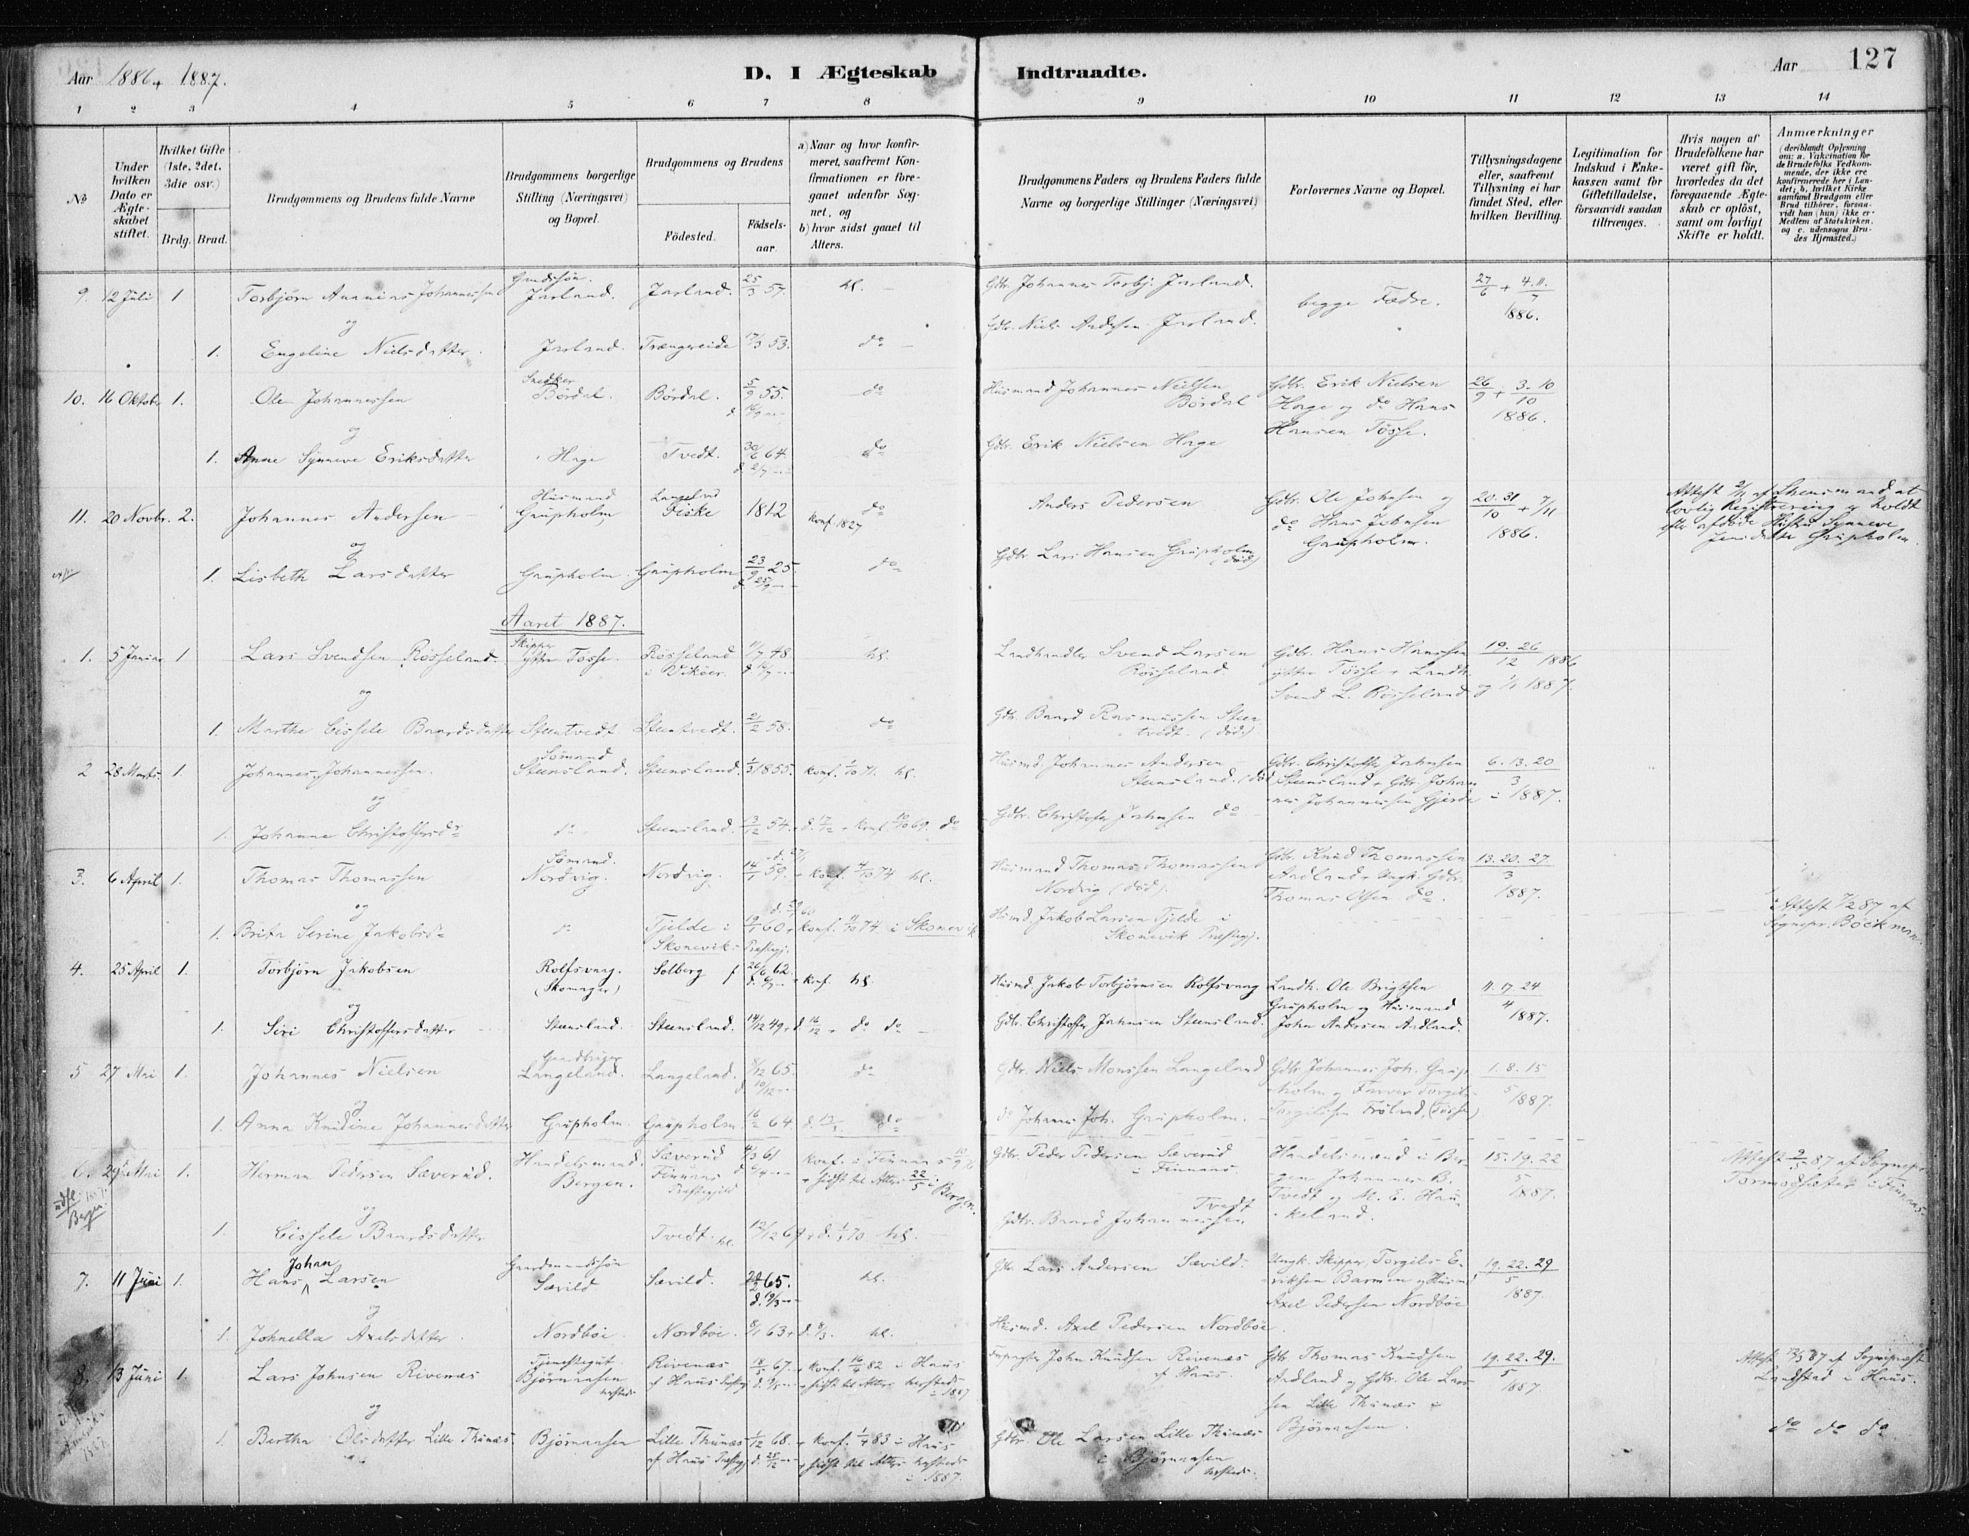 Aar 1886 + 1887.
D. I Ægteskab Indtraadte.
Aar 127
1 2 3 4 5 6 7 8 9 10 11 12 13 14
№
Under hvilken Dato er Ægteskabet stiftet.
Hvilket Gifte (1ste, 2det. 3die osv.)
Brdg. Brud.
Brudgommens og Brudens fulde Navne
Brudgommens borgerlige Stilling (Næringsvei) og Bopæl.
Brudgommens og Brudens
Fødested.
Fødselsaar.
a) Naar og hvor konfirmeret, saafremt Konfirmationen er foregaaet udenfor Sognet, og
b) hvor sidst gaaet til Alters.
Brudgommens Faders og Brudens Faders fulde Navne og borgerlige Stillinger (Næringsvei)
Forlovernes Navne og Bopæl.
Tillysningsdagene eller, saafremt Tillysning ei har fundet Sted, efter hvilken Bevilling.
Legitimation for Indskud i Enkekassen samt for Giftetilladelse, forsaavidt saadan tiltrænges.
Hvis nogen af Brudefolkene har været gift før, hvorledes da det foregaaende Ægteskab er opløst, samt om lovligt Skifte er holdt.
Anmærkninger
(deriblandt Oplysning om: a. Vakcination for de Brudefolks Vedkommende, der ikke ere konfirmerede her i Landet; b. hvilket Kirkesamfund Brudgom eller Brud tilhører, forsaavidt han (hun) ikke er Medlem af Statskirken, og c. udensogns Brudes Hjemsted.)
9. 12 Juli 1 Torbjørn Ananias Johannessen Jarland. Jarland. 25/3 57. hl. Gdbr. Johannes Torbj. Jarland. begge Fædre. 27/6 + 4.11./7 1886.
og
1. Engeline Nielsdatter. Jarland. Trængereide 53. do Gdbr. Niels Andersen Jarland.
10. 16 Oktobr 1. Ole Johannessen Snedker Børdal. Børdal. 5/9 55. do Husmand Johannes Nielsen Børdal Gdbr. Erik Nielsen Hage og do Hans Hansen Tösse. 26/9 + 3-10/10 1886.
og
1. Anne Synneve Eriksdatter Hage Tvedt. 30/6 64. do Gdbr. Erik Nielsen Hage
11. 20 Novbr. 2. Johannes Andersen Husmand Grupholm Feske 1812 do konf. 1827 Anders Pedersen Gdbr. Ole Johnsen og do Hans Johnsen Grupholm. 20.31/10 + 7/11 1886. Attest af Lensmand at lovlig Registrering er holdt efter afdøde Hustru Synneve Jensdatter Grupholm.
og
1. Lisbeth Larsdatter Grupholm. Grupholm 23/9 25. do Gdbr Lars Hansen Grupholm (död)
Aaret 1887.
1. 5 Januar 1 Lars Svendsen Rösseland. Skipper ytre Tosse. Rösseland i Vikøer. 48 hl. Landhandler Svend Larsen Rösseland. Gdbr. Hans Hanssen ytre Tösse + Landh. Svend L. Rösseland 19.26/12 1886 og 1/1 1887.
og
1. Marthe Cissele Baardsdatter Steentvedt Steentvedt. 2/2 58. do Gdbr. Baard Rasmussen Steentvedt (död)
2 28 Marts. 1. Johannes Johannessen. Sömand Steensland. Steensland. 1855. konf. hl. Husmd. Johannes Andersen Steensland. (död) Gdbr. Christoffer Johnsen Steensland + Gdbr. Johannes Johannessen Gjerde 6.13.20/3 1887.
og
1. Johanne Christoffersdr do Steensland. 13/12 54. konf 69. do Gdbr. Christoffer Johnsen do
3. 6 April 1. Thomas Thomassen Sömand. Nordvig. Nordvig. 14/1 59. konf. 74 hl. Husmand Thomas Thomassen Nordvig (död). Gdbr. Knud Thomassen Aadland + Ungk. Gdbr. Thomas Olsen do. 13.20.27/3 1887.
og
1. Brita Serine Jakobsdr do Tjelde i Skonevik Præstegj. 60 konf. 74 i Skonevik Husmd. Jakob Larsen Tjelde i Skonevik Præstegj. Attest 7/2 87 af Sognepr. Böckman.
4. 25 April 1. Torbjørn Jakobsen Rolfsvaag. (Skomager) Solberg 26/6 62. konf. hl. Husmd. Jakob Torbjørnsen Rolfsvaag Landh. Ole Brigtsen Grupholm og Husmand John Andersen Aadland. 11.17.24/4 1887.
og
1. Siri Christoffersdatter Steensland. Steensland. 14/12 49. do do Gdbr. Christoffer Johnsen Steensland.
5 27 Mai 1. Johannes Nielsen Gaardbruger Langeland. Langeland. 8/12 65. do Gdbr. Niels Monssen Langeland Gdbr Johannes Joh. Grupholm og Farver Torgils Torgilssen Fröland (Tösse) 1.8.15/5 1887.
og
1. Anna Knudine Johannesdatter Grupholm. Grupholm 64 do do Johannes Joh. Grupholm.
6. 29 Mai 1. Herman Pedersen Sæverud. Handelsmand. Bergen. Sæverud Finnaas Præstegjeld 61 konf. i Finnaas + sidst til Alters 22/5 i Bergen. Gdbr. Peder Pedersen Sæverud i Finnaas. Handelsmænd i Bergen Johannes B. Tvedt og M. E. Haukeland. 15.19.22/5 1887. Attest 9/5 87 af Sognepr. Tormodsæter i Finnaas.
og
1. Cissele Baardsdatter Tvedt. hl. 12/12 69 hl. Gdbr. Baard Johannessen Tvedt
7. 11 Juni 1. Hans Johan Larsen Gaardmandssön Sævild Sævild. 65. hl. Gbr. Lars Andersen Sævild. Ungk. Skipper Torgils Eriksen Barmen og Husmd Axel Pedersen Nordbøe 19.22.29/5 1887.
og
1. Johnella Axelsdatter. Nordbøe. Nordbøe. 63 hl. Husmd. Axel Pedersen Nordbøe.
8. 13 Juni 1. Lars Johnsen Rivenæs Tjenestegut Bjørnaasen hersteds Rivenæs af Haus 18/5 67. konf. 82 i Haus + sidst til Alters hersteds i 1887 John Knudsen Rivenæs af Haus. Gdbr Thomas Knudsen Aadland og Gdbr. Ole Larssen Lille Thunæs i Bjørnaasen. 19.22.29./5 1887 Attest 87 af Sogneprest Landstad i Haus.
og
1. Bertha Olsdatter Lille Thunæs. Bjørnaasen Lille Thunæs af Haus 1/12 68. konf. 83 i Haus + sidst til Alters hersteds i 1887. Gdbr. Ole Larsen Lille Thunæs i Bjørnaasen hersteds. do do do